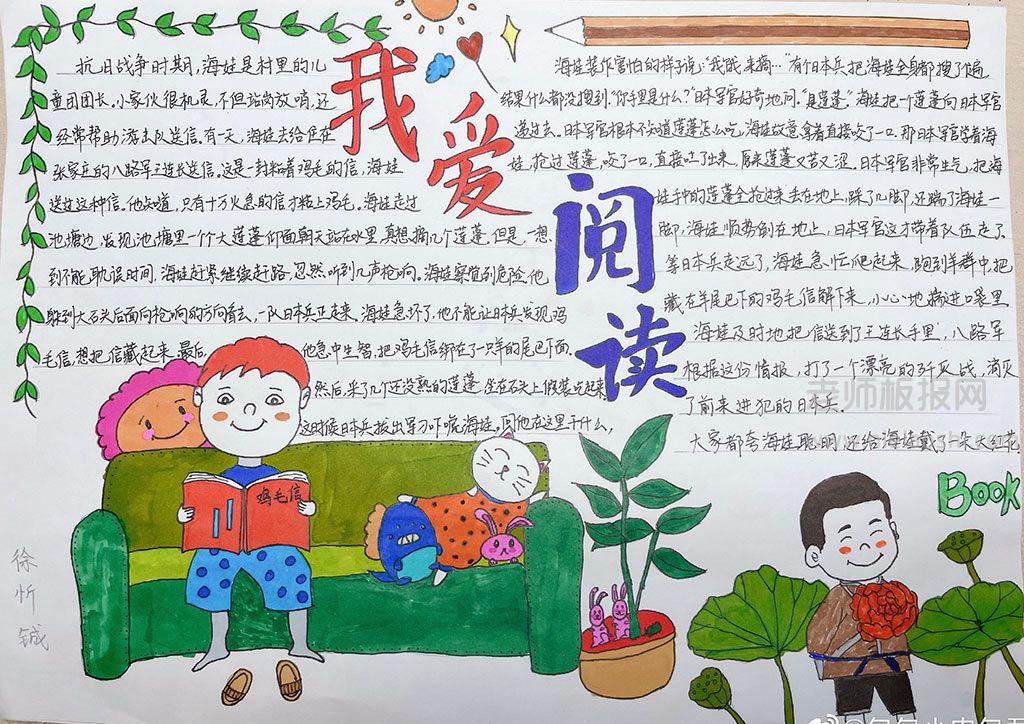 我爱
阅读
抗日战争时期，海娃是村里的儿
童团团长。小家伙很机灵，不但站岗放哨，还
经常帮助游击队送信。有一天，海娃去给住在
张家庄的八路军王连长送信。这是一封粘着鸡毛的信，海娃
送过这种信。他知道，只有十万火急的信才粘上鸡毛。海娃走过
池塘边，发现池塘里一个个大莲蓬仰面朝天站在水里，真想摘几个莲蓬。但是，一想
到不能耽误时间，海娃赶紧继续赶路。忽然听到几声枪响。海娃察觉到危险，他
躲到大石头后面向枪响的方向看去，一队日本兵正走来。海娃急坏了，他不能让日本兵发现鸡
毛信，想把信藏起来。最后，
他急中生智，把鸡毛信绑在了一只羊的尾巴下面。
然后，采了几个还没熟的莲蓬，坐在石头上假装吃起来。
这时候日本兵拔出军刀吓唬海娃，问他在这里干什么，
海娃装作害怕的样子说：“我饿，来摘…”有个日本兵把海娃全身都搜了个遍，
结果什么都没搜到。“你手里是什么？”日本军官好奇地问。“是莲蓬。”海娃把一个莲蓬向日本军官
递过去。日本军官根本不知道莲蓬怎么吃，海娃故意拿着直接咬了一口。那日本军官学着海
娃，抢过莲蓬，咬了一口，直接吐了出来，原来莲蓬又苦又涩。日本军官非常生气，把海
娃手中的莲蓬全抢过来丢在地上，踩了几脚，还踹了海娃一
脚，海娃顺势倒在地上，日本军官这才带着队伍走了。
等日本兵走远了，海娃急忙爬起来，跑到羊群中，把
藏在羊尾巴下的鸡毛信解下来，小心地揣进口袋里。
海娃及时地把信送到了王连长手里，八路军
根据这份情报，打了一个漂亮的歼灭战，消灭
了前来进犯的日本兵。
大家都夸海娃聪明，还给海娃戴了一朵大红花
鸡毛信
Book
徐忻铖
老师板报网